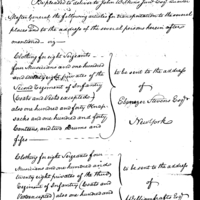 Be pleased to deliver to John Wilkins Junr Esqr Quarter
Master General the following articles for transportation to the several
places and to the address of the several persons hereon after
mentioned. viz
Clothing for eight Sergeants
four Musicians and one hundred
and privates of the
Second Regiment of Infantry
(Coats and Vests excepted)
also one hundred and forty Knap
sacks and one hundred and forty
Canteens, and two Drums and
fifes
to be sent to the address
of
Ebenezer Stevens Esqr
New York
Clothing for eight Sergeants
four Musicians and one hundred and
twenty eight privates of the third
Regiment of Infantry (Coats and
excepted) also one hundred and
to be sent to the address
of
Esq